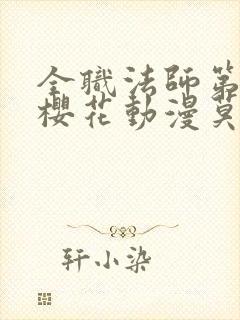 全職法師第
櫻花動漫莫
轩小染